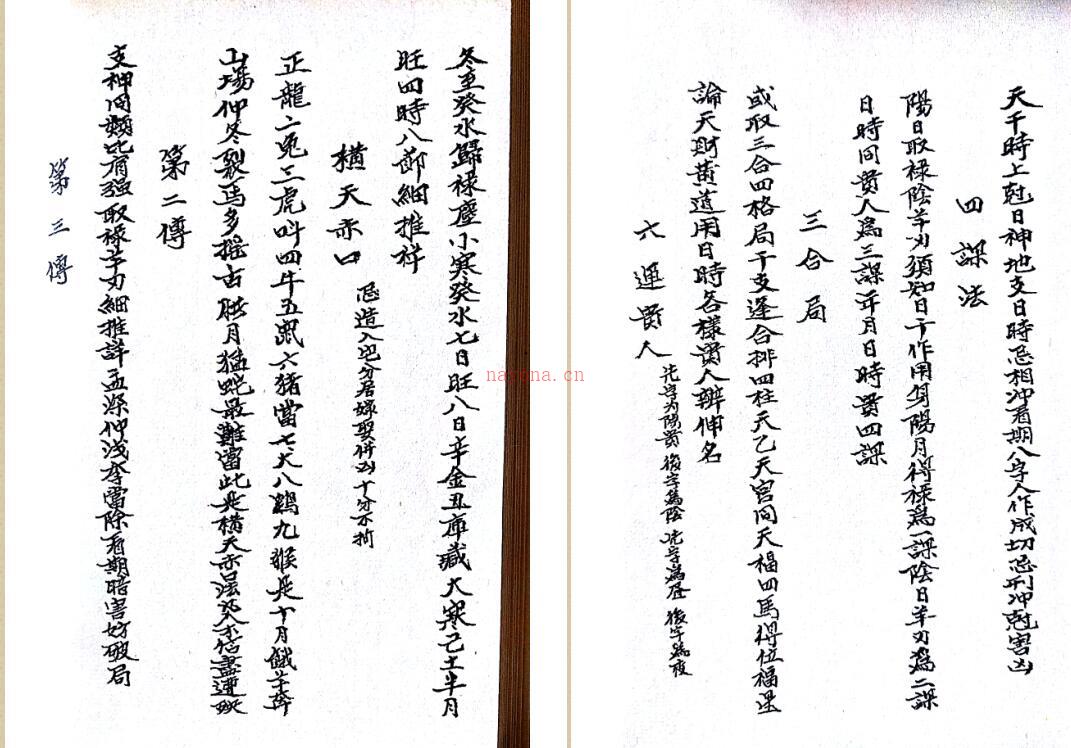 天干時上尅日神地支日時忌相冲看期八字人作成切忌刑冲尅害凶
四課法
陽日取禄陰羊刃須知日干作用身陽月得禄為一課陰日羊刃為二課
日時同貴人為三課年月日時貴四課
三合局
或取三合四格局干支逢合排四柱天乙天官同天福四馬得位福星
論天財黄道用日時各樣貴人辨伸名
六逥貴人
先字为陽貴後字為陰先字為昼後字為夜
冬至癸水歸禄塵小寒癸水七日旺八日辛金丑庫藏大寒己土半月
旺四時八節細推祥
横天赤口
忌造入宅分居嫁娶併凶十分不拘
正龍二兎三虎呌四牛五鼠六猪當七犬八鷄九猴是十月餓羊奔
山塲仲冬裂馬多摇古腊月猛蛇最難當此是横天赤口若不信盡遭殃
第二傳
支神同類比肩强取禄羊刃細推詳孟深仲浅季當除看期暗害妨破局
第三傳
nayona.cn